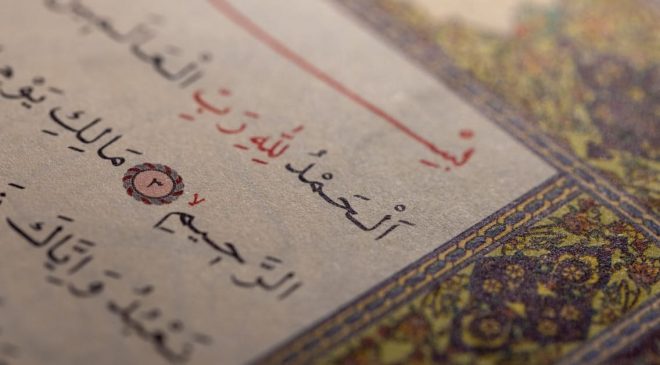 اَلْحَمْدُ لِلّٰهِ رَبِّ الْعَالَمِينَ
الرَّحِيمِۙ ٣ مَالِكِ يَوْمِ
نَعْبُدُ وَاِيَّاكَ